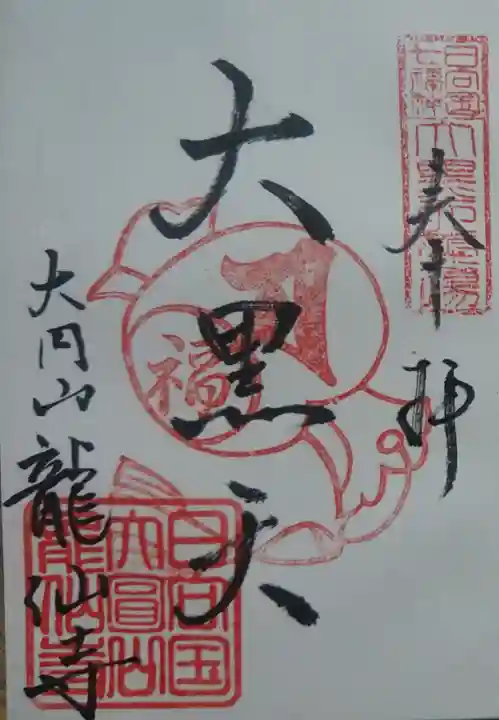 奉拝
日向国
七福神
大黒天霊場
大黒天
福
大円山龍仙寺
日向国
大圓山
龍仙寺